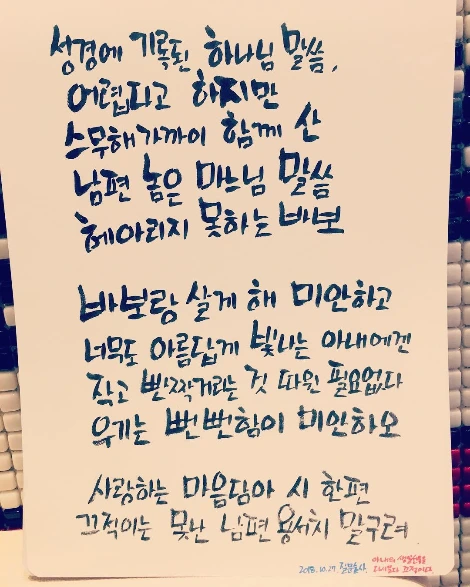 성경에 기록된 하나님 말씀,
어렵다고 하지만
스무해 가까이 함께 산
남편 놈은 마느님 말씀
헤아리지 못하는 바보
바보랑 살게 해 미안하고
너무도 아름답게 빛나는 아내에겐
작고 반짝거리는 것 따윈 필요없다
우기는 뻔뻔함이 미안하오
사랑하는 마음담아 시 한편
끄적이는 못난 남편 용서치 말구려
2018.10.27
아내의